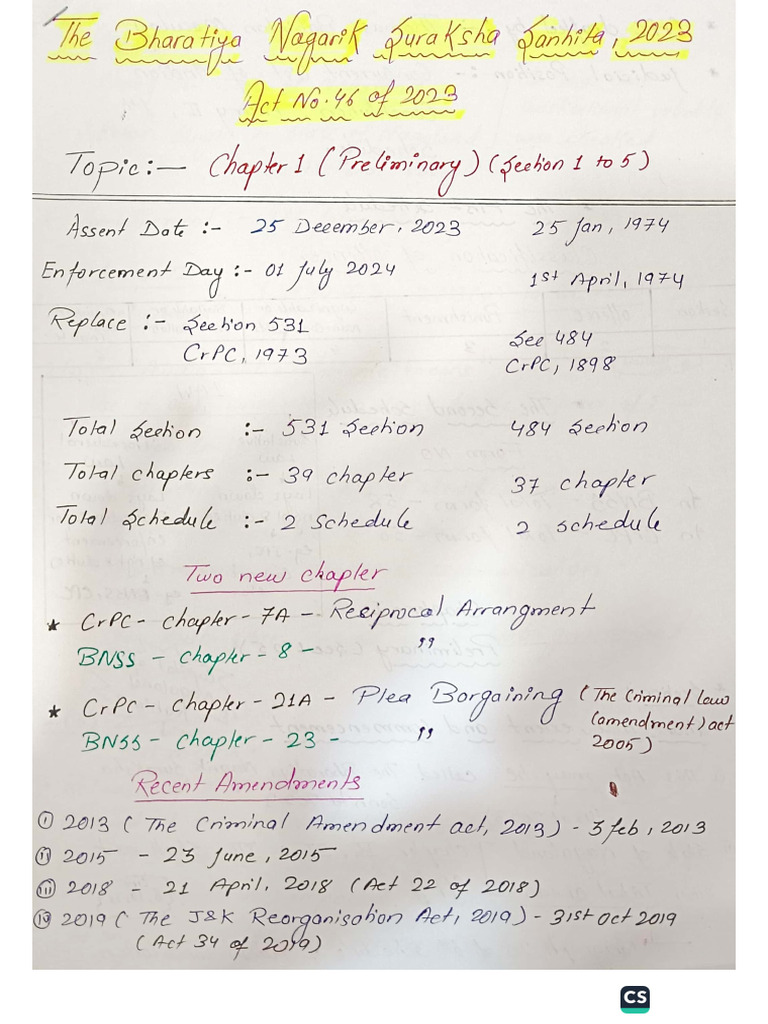 The Bharatiya Nagarik Suraksha Sanhita, 2023
Act No. 46 of 2023
Topic:- Chapter 1 (Preliminary) (Section 1 to 5)
Assent Date :- 25 December, 2023 25 Jan, 1974
Enforcement Day :- 01 July 2024 1st April, 1974
Replace :- Section 531 Sec 484
CrPC, 1973 CrPC, 1898
Total Section :- 531 Section 484 Section
Total chapters :- 39 chapter 37 chapter
Total Schedule :- 2 Schedule 2 schedule
Two new chapter
* CrPC - chapter - 7A - Resiprocal Arrangment
BNSS - Chapter - 8 - ,,
* CrPC - chapter - 21A - Plea Borgaining (The Criminal law (amendment) act 2005)
BNSS - Chapter - 23 - ,,
Recent Amendments
(i) 2013 (The Criminal Amendment act, 2013) - 3 feb, 2013
(ii) 2015 - 23 June, 2015
(iii) 2018 - 21 April, 2018 (Act 22 of 2018)
(iv) 2019 (The J&K Reorganisation Act, 2019) - 31st Oct 2019
(Act 34 of 2019)
CS